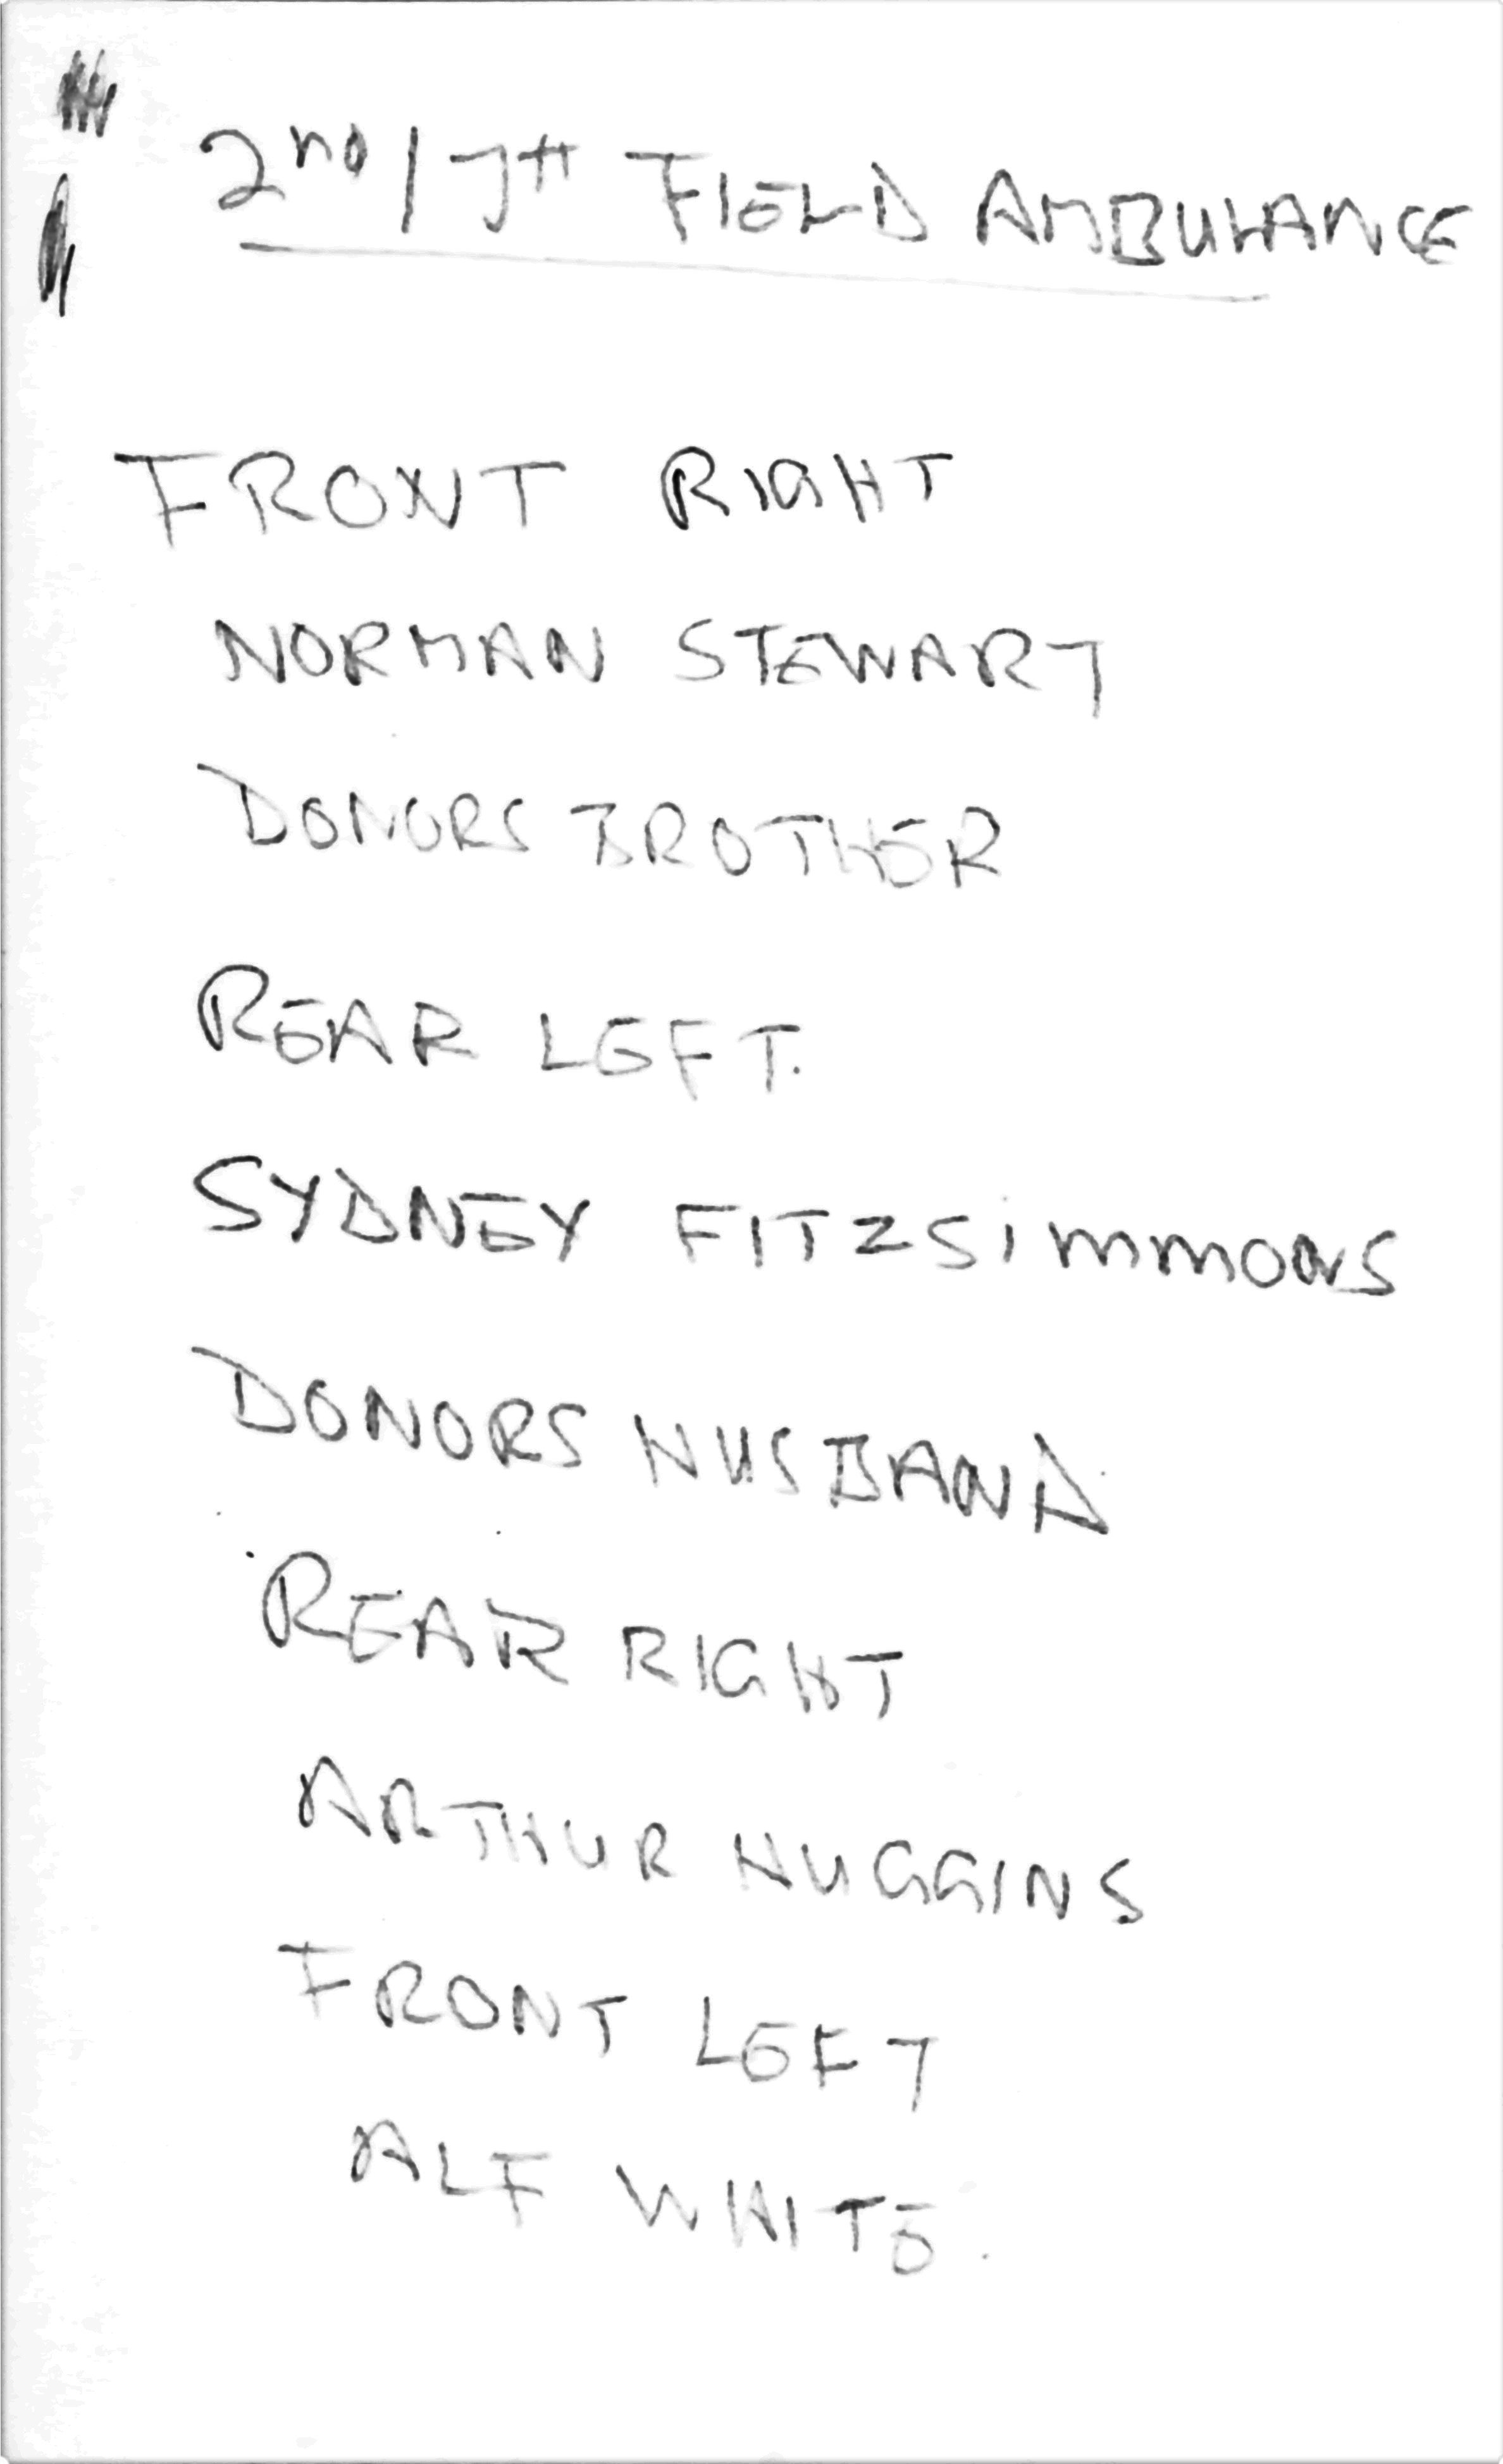 2ND/7TH FIELD AMBULANCE
FRONT RIGHT
NORMAN STEWART
DONORS BROTHER
REAR LEFT.
SYDNEY FITZSIMMONS
DONORS HUSBAND
REAR RIGHT
ARTHUR HUGGINS
FRONT LEFT
ALF WHITE.